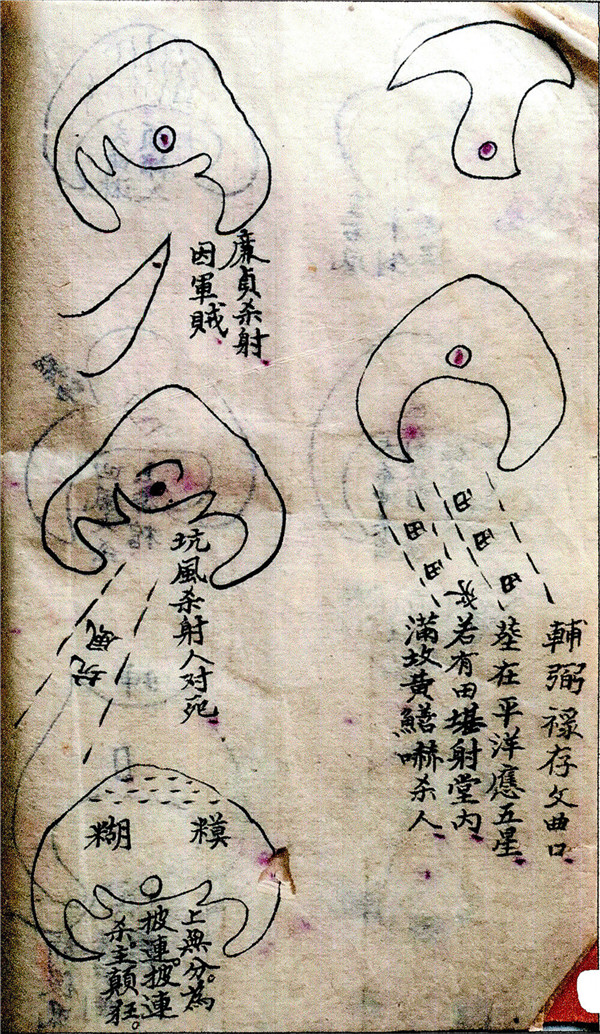 輔弼禄存文曲口
塟在平洋應五星
若有田堪射堂内
滿坟黄鱔嚇杀人
田
田
田
田
田
廉貞杀射
因軍賊
坑風杀射人对死
坑風
糢糊
上無分。為
披連。披連
杀。主顛狂。